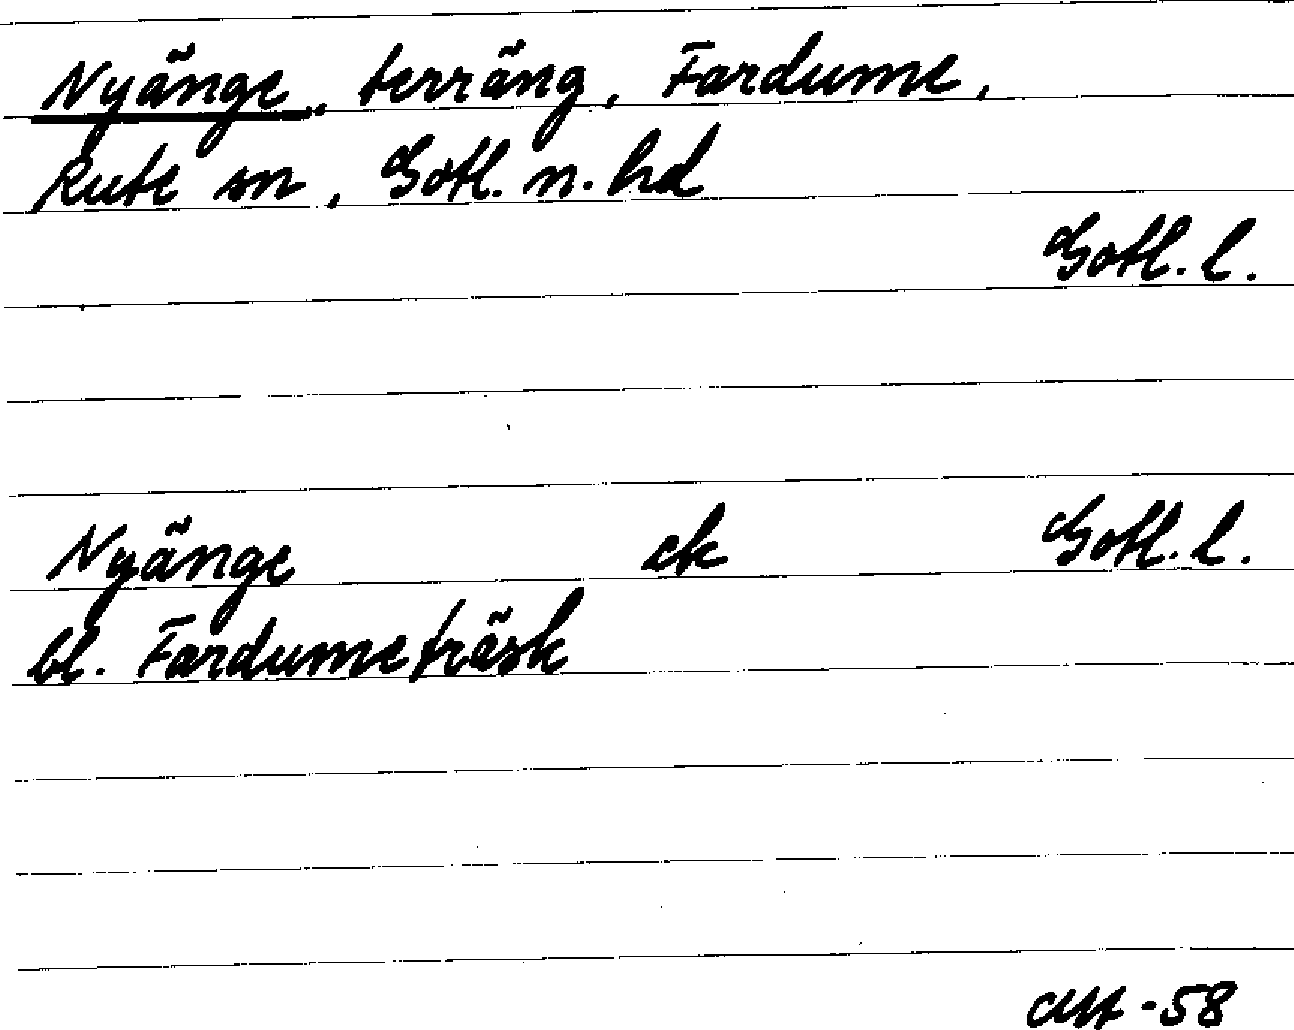 Nyänge, terräng, Fardume,
Rute sn, Gotl. n. hd
Gotl. l.
Nyänge ek Gotl. l.
bl. Fardumeträsk
-58